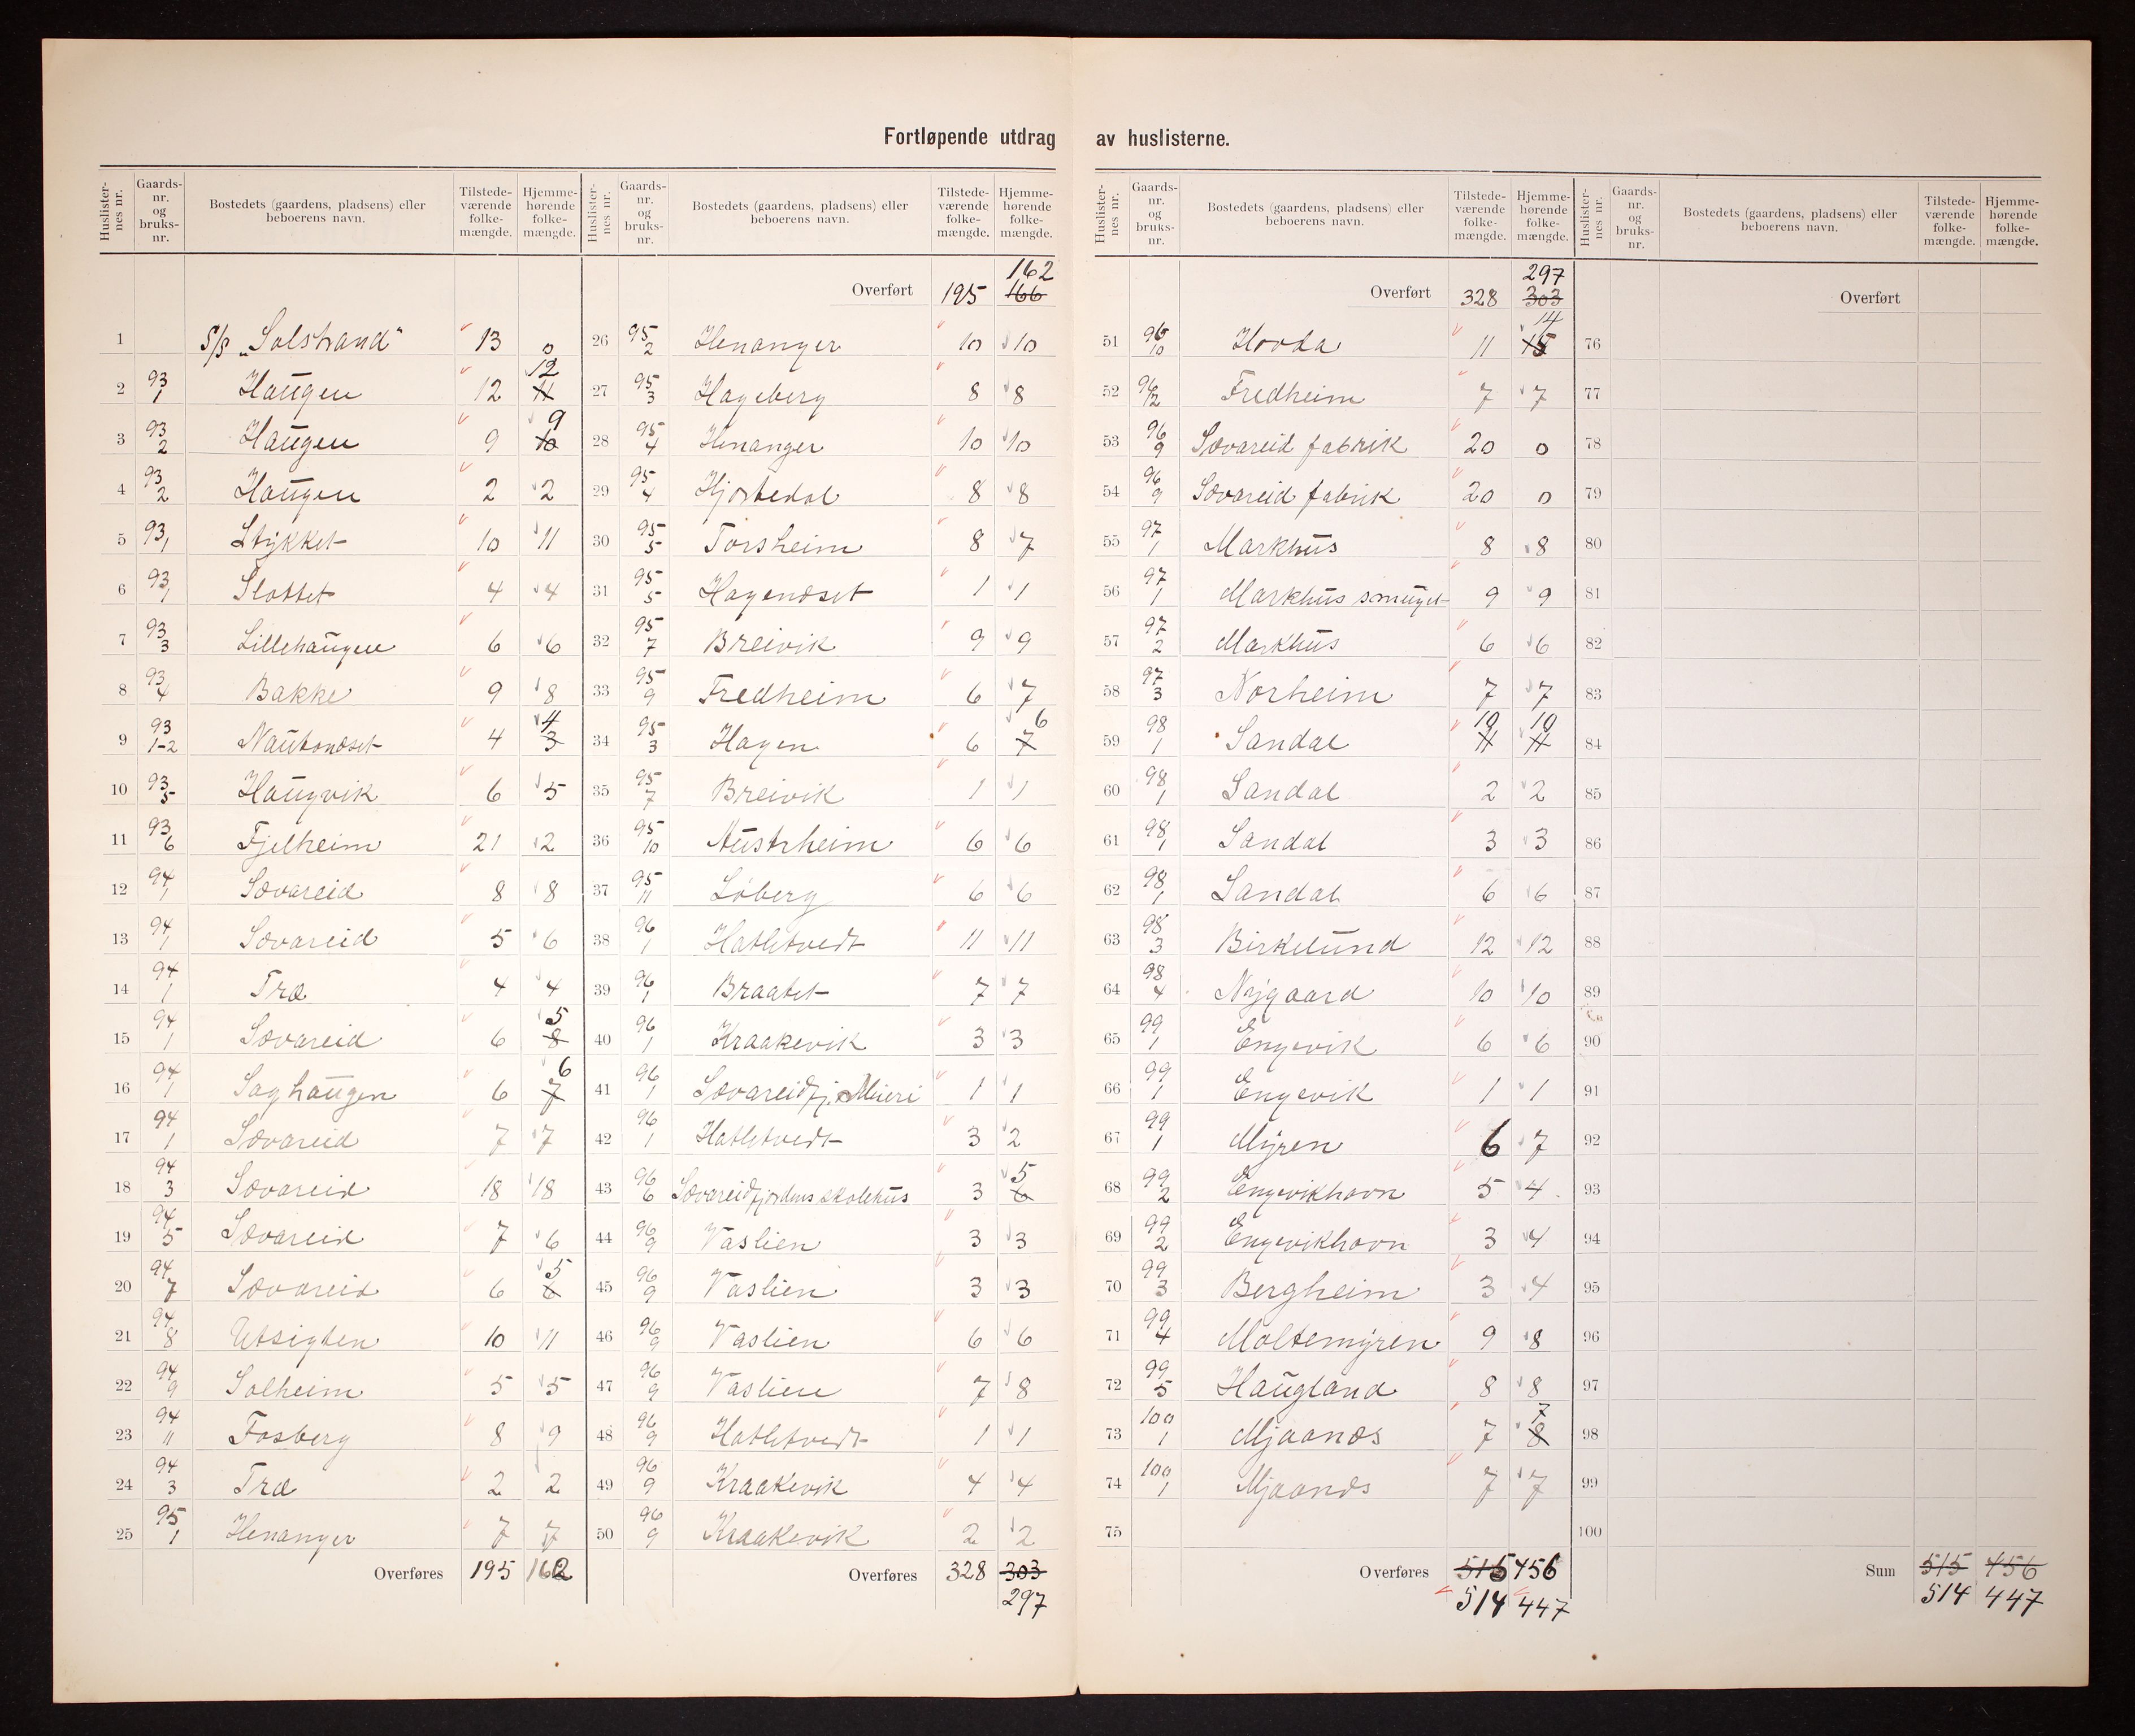 Fortløpende utdrag av huslisterne.
Huslisternes nr. Gaards-nr. og bruks-nr. Bostedets (gaardens, pladsens) eller beboerens navn. Tilstede-værende folke-mængde. Hjemme-hørende folke-mængde.
1 S/s „Solstrand" 13 0
2 93/1 Haugen 12 11 12
3 93/2 Haugen 9 10 9
4 93/2 Haugen 2 2
5 93/1 Stykket 10 11
6 93/1 Slottet 4 4
7 93/3 Lillehaugen 6 6
8 93/4 Bakke 9 8
9 93/1-2 Nautonæset 4 3 4
10 93/5 Haugvik 6 5
11 93/6 Fjelheim 21 2
12 94/1 Sævareid 8 8
13 94/1 Sævareid 5 6
14 94/1 Træ 4 4
15 94/1 Sævareid 6 8 5
16 94/1 Saghaugen 6 7 6
17 94/1 Sævareid 7 7
18 94/3 Sævareid 18 18
19 94/5 Sævareid 7 6
20 94/7 Sævareid 6 6 5
21 94/8 Utsigten 10 11
22 94/9 Solheim 5 5
23 94/11 Fosberg 8 9
24 94/3 Træ 2 2
25 95/1 Henanger 7 7
Overføres 195 162
Huslisternes nr. Gaards-nr. og bruks-nr. Bostedets (gaardens, pladsens) eller beboerens navn. Tilstede-værende folke-mængde. Hjemme-hørende folke-mængde.
162
Overført 195 166
26 95/2 Henanger 10 10
27 95/3 Hageberg 8 8
28 95/4 Henanger 10 10
29 95/4 Hjortedal 8 8
30 95/5 Torsheim 8 7
31 95/5 Hagenæset 1 1
32 95/7 Breivik 9 9
33 95/9 Fredheim 6 7
34 95/3 Hagen 6 7 6
35 95/7 Breivik 1 1
36 95/10 Austrheim 6 6
37 95/11 Løberg 6 6
38 96/1 Hatletvedt 11 11
39 96/1 Braatet 7 7
40 96/1 Kraakevik 3 3
41 96/1 Sævareidfj. Mieri 1 1
42 96/1 Hatletvedt 3 2
43 96/6 Sævareidfjordens skolehus 3 6 5
44 96/9 Vaslien 3 3
45 96/9 Vaslien 3 3
46 96/9 Vaslien 6 6
47 96/9 Vaslien 7 8
48 96/9 Hatletvedt 1 1
49 96/9 Kraakevik 4 4
50 96/9 Kraakevik 2 2
Overføres 328 303
297
Huslisternes nr. Gaards-nr. og bruks-nr. Bostedets (gaardens, pladsens) eller beboerens navn. Tilstede-værende folke-mængde. Hjemme-hørende folke-mængde.
297
Overført 328 303
51 96/10 Hovda 11 15 14
52 96/12 Fredheim 7 7
53 96/9 Sævareid fabrik 20 0
54 96/9 Sævareid fabrik 20 0
55 97/1 Markhus 8 8
56 97/1 Markhus smuget 9 9
57 97/2 Markhus 6 6
58 97/3 Norheim 7 7
59 98/1 Sandal 11 10 11 10
60 98/1 Sandal 2 2
61 98/1 Sandal 3 3
62 98/1 Sandal 6 6
63 98/3 Birkelund 12 12
64 98/4 Nygaard 10 10
65 99/1 Engevik 6 6
66 99/1 Engevik 1 1
67 99/1 Myren 6 7
68 99/2 Engevikhavn 5 4
69 99/2 Engevikhavn 3 4
70 99/3 Bergheim 3 4
71 99/4 Moltemyren 9 8
72 99/5 Haugland 8 8
73 100/1 Mjaanæs 7 8 7
74 100/1 Mjaanæs 7 7
75
Overføres 515 456
514 447
Huslisternes nr. Gaards-nr. og bruks-nr. Bostedets (gaardens, pladsens) eller beboerens navn. Tilstede-værende folke-mængde. Hjemme-hørende folke-mængde.
Overført
76
77
78
79
80
81
82
83
84
85
86
87
88
89
90
91
92
93
94
95
96
97
98
99
100
Sum 515 456
514 447